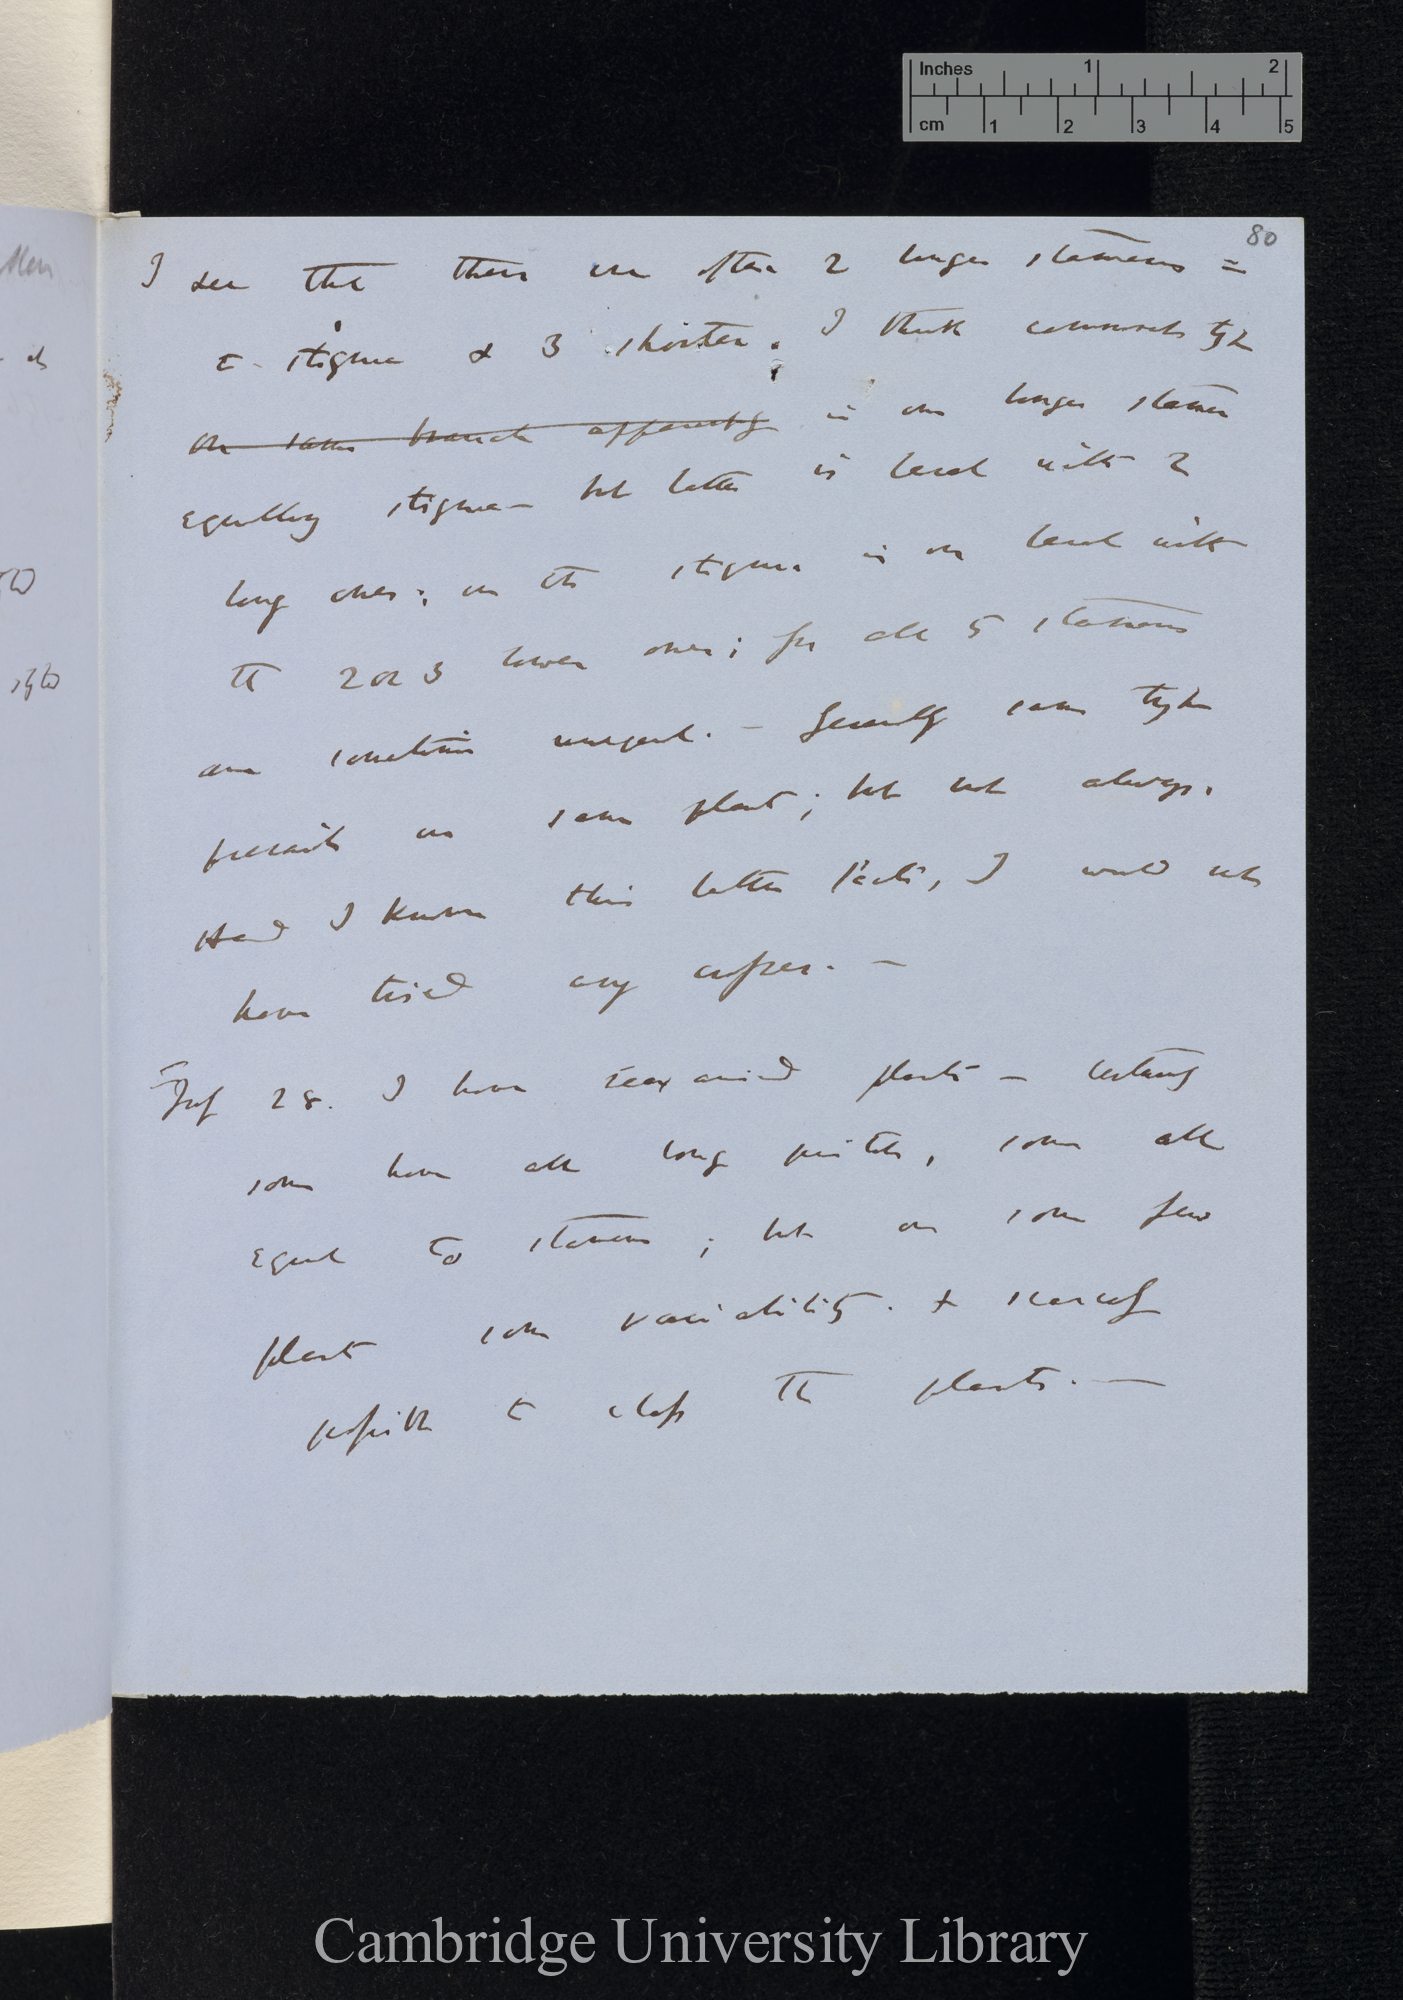 Inches 1 2
cm 1 2 3 4 5
80
I see that there are often 2 longer stamens =
to stigma & 3 shorter. I think commonest type
on same branch apparently is one longer stamen
equalling stigma — but latter is level with 2
long ones; or the stigma is on level with
the 2 or 3 lower ones; for all 5 stamens
are sometimes unequal. — Generally same type
prevails on same plant; but not always.
Had I known this latter fact, I would not
have tried any crosses. —
28. I have reexamined plants — certainly
some have all long pistils, some all
equal to stamens; but on some few
plants some variability. & scarcely
possible to class the plants. —
Cambridge University Library